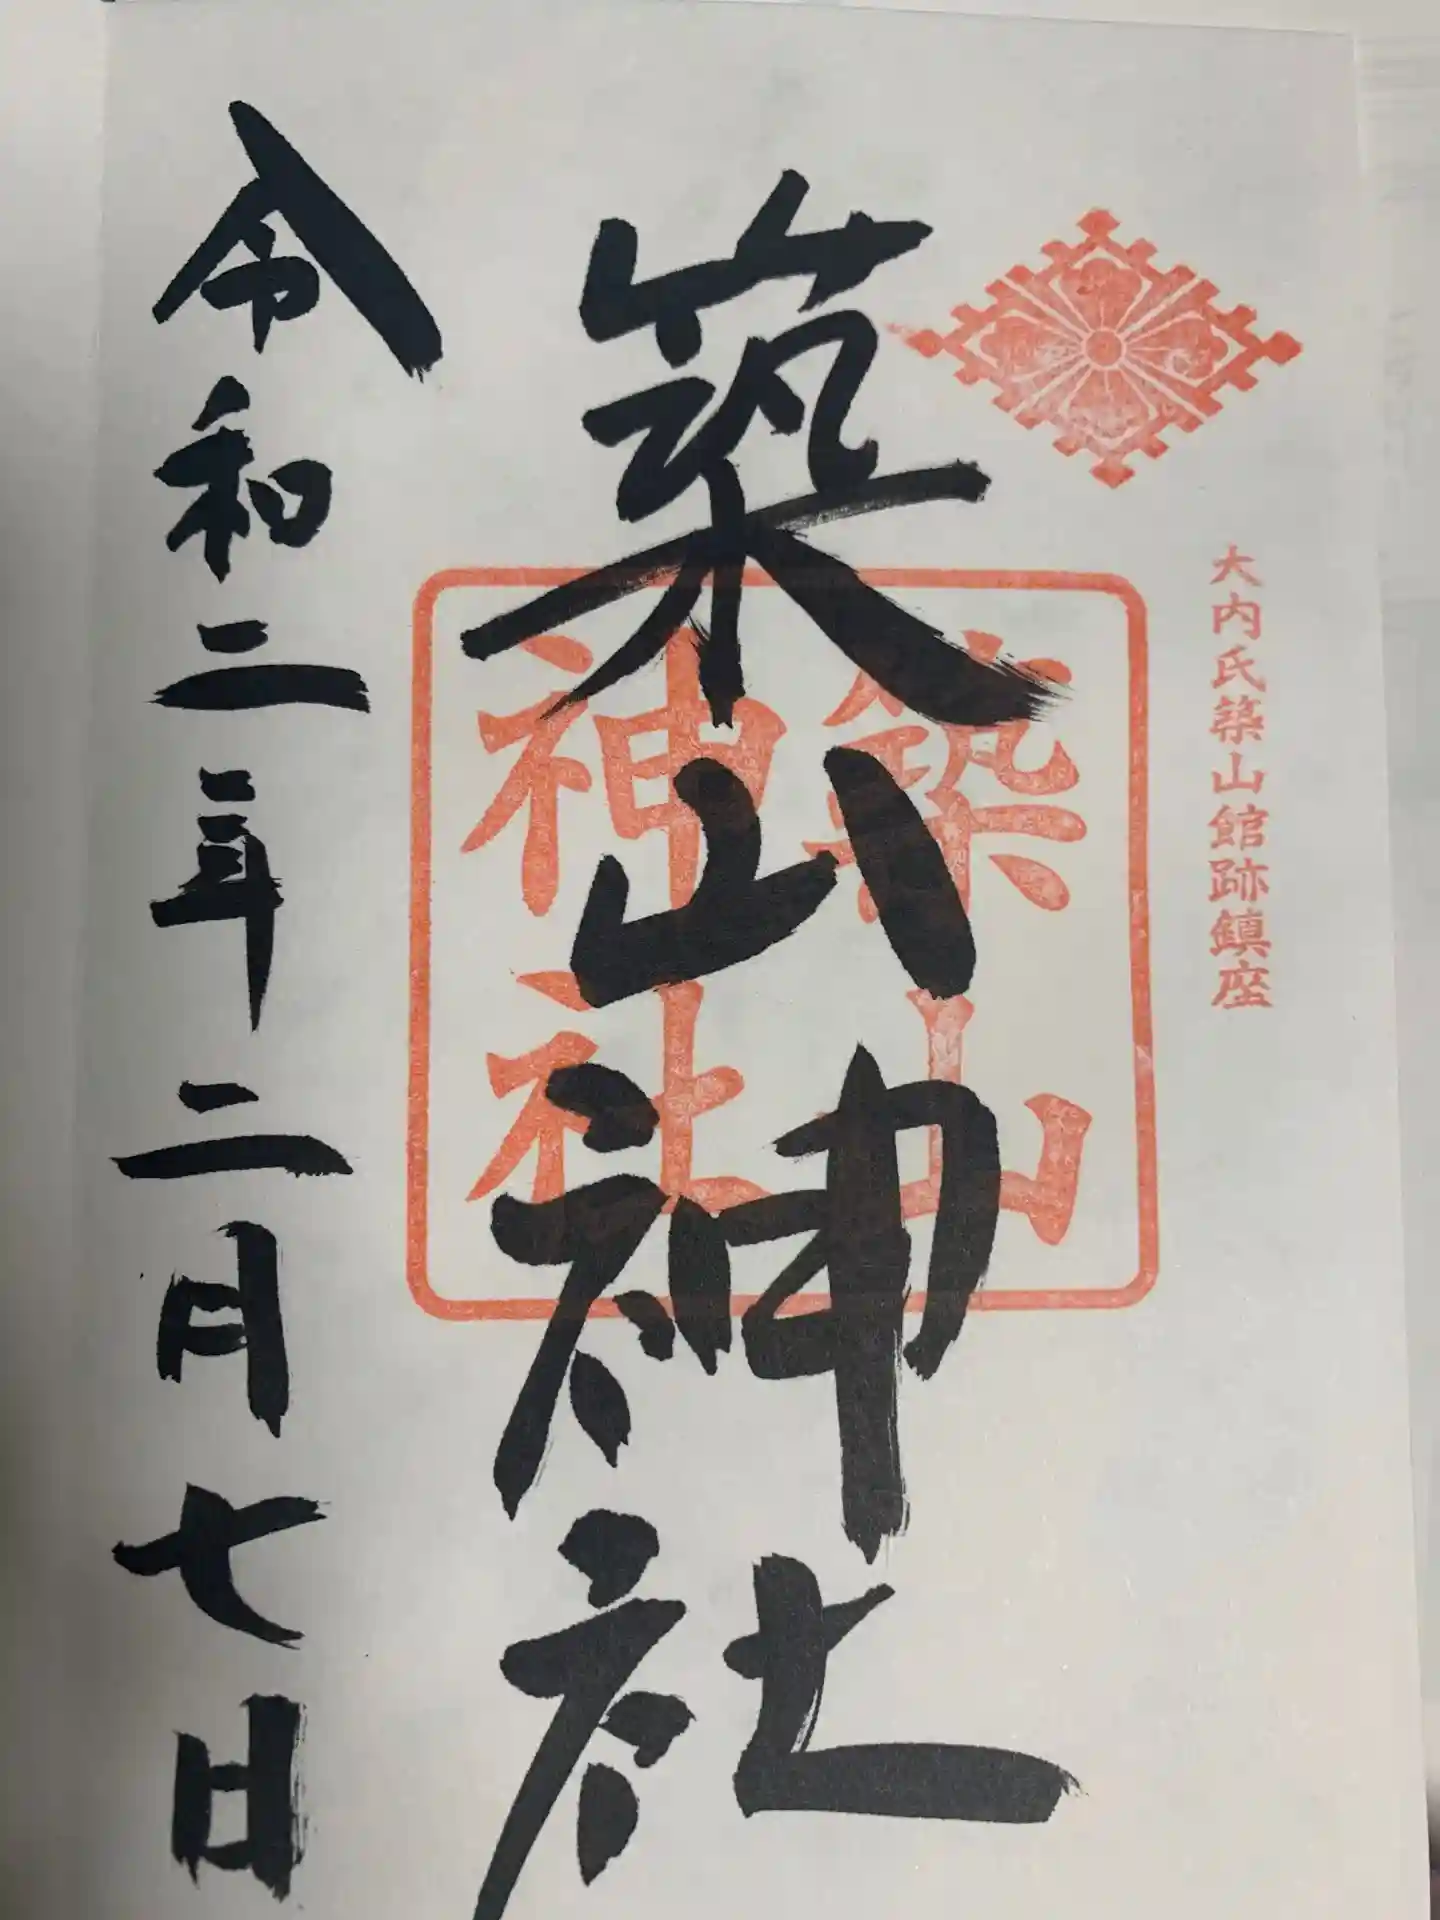 大内氏築山館跡鎮座
築山神社
築山
神社
令和二年二月七日